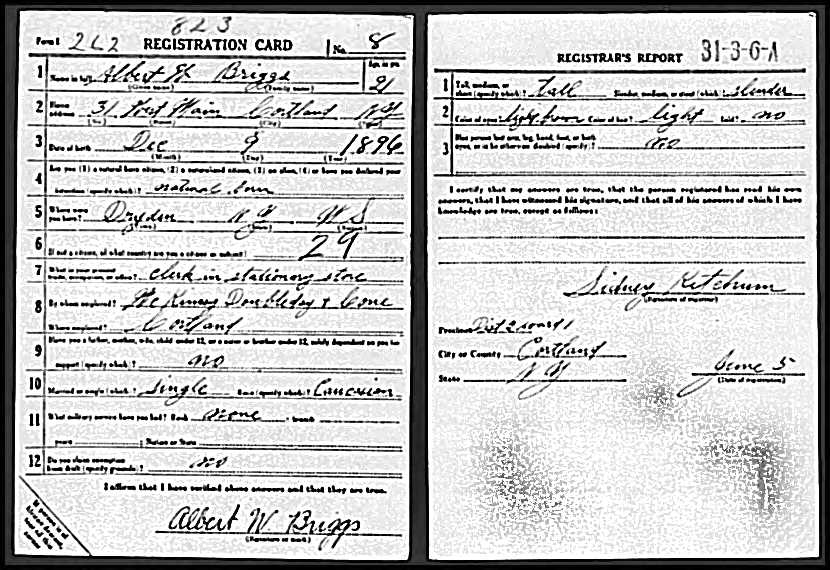 823
Form 1 262 REGISTRATION CARD No. 8
1 Name in full Albert W. Briggs Age, in yrs. 21
(Given name) (Family name)
2 Home address 31 West Main Cortland N.Y.
(No.) (Street) (City) (State)
3 Date of birth Dec 9 1896
(Month) (Day) (Year)
4 Are you (1) a natural born citizen, (2) a naturalized citizen, (3) an alien, (4) or have you declared your
intention (specify which)? natural born
5 Where were you born? Dryden N.Y. U S
(Town) (State) (Nation)
6 If not a citizen, of what country are you a citizen or subject? 29
7 What is your present trade, occupation, or office? clerk in stationary store
8 By whom employed? McKinney Doubleday & Cone
Where employed? Cortland
9 Have you a father, mother, wife, child under 12, or a sister or brother under 12, solely dependent on you for
support (specify which)? no
10 Married or single (which)? Single Race (specify which)? Caucasion
11 What military service have you had? Rank none ; branch
years ; Nation or State
12 Do you claim exemption from draft (specify grounds)? no
I affirm that I have verified above answers and that they are true.
Albert W. Briggs
(Signature or mark)
If person is of African descent, tear off this corner
REGISTRAR'S REPORT 31-3-6-A
1 Tall, medium, or short (specify which)? tall Slender, medium, or stout (which)? slender
2 Color of eyes? light brown Color of hair? light Bald? no
3 Has person lost arm, leg, hand, foot, or both eyes, or is he otherwise disabled (specify)? no
I certify that my answers are true, that the person registered has read his own
answers, that I have witnessed his signature, and that all of his answers of which I have
knowledge are true, except as follows:
Sidney Ketchum
(Signature of registrar)
Precinct Dist 2 ward 1
City or County Cortland
State N Y June 5
(Date of registration)